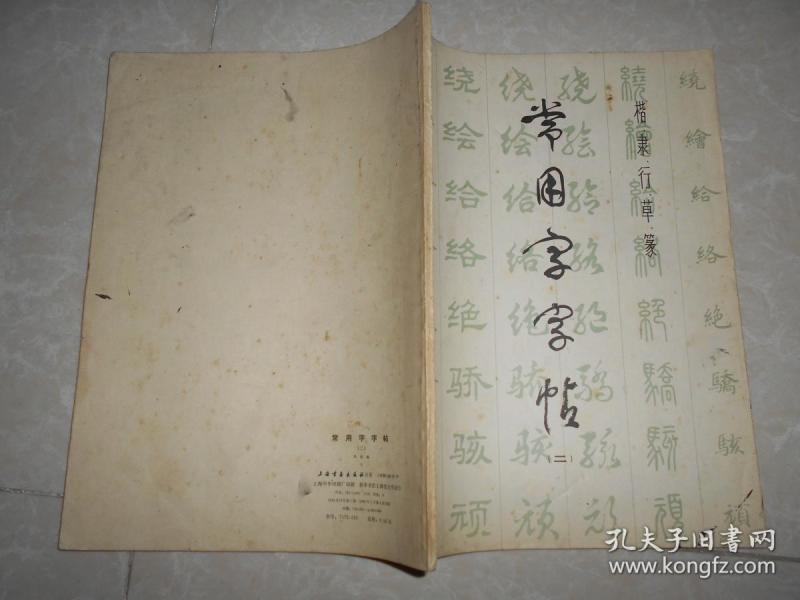 常用字字帖
(二)
楷·隶·行·草·篆
绕 绕 绕 繞 繞
绘 绘 绘 繪 繪
给 给 给 給 給
络 络 络 絡 絡
绝 绝 绝 絕 絶
骄 骄 骄 驕 驕
骇 骇 骇 駭 駭
顽 顽 顽 頑 頑
常用字字帖
(二)
上海书画出版社
孔夫子旧书网
www.kongfz.com